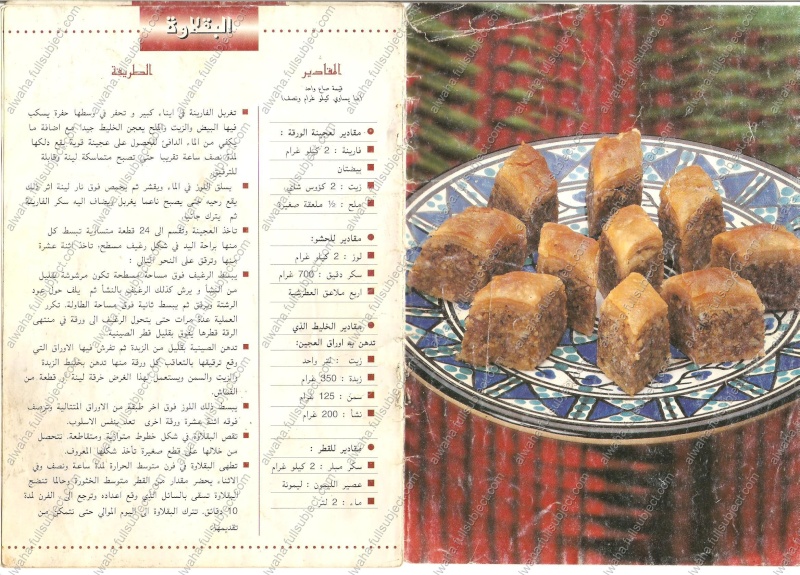 البقلاوة
المقادير
قيمة صاع واحد
(ما يساوي كيلو غرام ونصف)
مقادير لعجينة الورقة :
فارينة : 2 كيلو غرام
بيضتان
زيت : 2 كؤوس شاي
ملح : ½ ملعقة صغيرة
مقادير للحشو:
لوز : 2 كيلو غرام
سكر دقيق : 700 غرام
اربع ملاعق العطرشية
مقادير الخليط الذي
تدهن به أوراق العجين:
زيت : لتر واحد
زبدة : 350 غرام
سمن : 125 غرام
نشأ : 200 غرام
مقادير للقطر :
سكر مبلر : 2 كيلو غرام
عصير الليمون : ليمونة
ماء : 2 لتر
الطريقة
تغربل الفارينة في ايناء كبير و تحفر في وسطها حفرة يسكب
فيها البيض والزيت والملح يعجن الخليط جيدا مع اضافة ما
يكفي من الماء الدافئ للحصول على عجينة قوية يقع دلكها
لمدة نصف ساعة تقريبا حتى تصبح متماسكة لينة وقابلة
للترقيق
يسلق اللوز في الماء ويقشر ثم يحمص فوق نار لينة اثر ذلك
يقع رحيه حتى يصبح ناعما يغربل ويضاف اليه سكر الفارينة
ثم يترك جانبا
تأخذ العجينة وتقسم الى 24 قطعة متساوية تبسط كل
منها براحة اليد في شكل رغيف مسطح، تأخذ اثنة عشرة
منها وترقق على النحو التالي :
يبسط الرغيف فوق مساحة مسطحة تكون مرشوشة بقليل
من النشأ و يرش كذلك الرغيف بالنشأ ثم يلف حول عود
الرشتة ويرقق ثم يبسط ثانية فوق مساحة الطاولة. تكرر
العملية عدة مرات حتى يتحول الرغيف الى ورقة في منتهى
الرقة قطرها يفوق بقليل قطر الصينية.
تدهن الصينية بقليل من الزبدة ثم تفرش فيها الاوراق التي
وقع ترقيقها بالتعاقب كل ورقة منها تدهن بخليط الزبدة
والزيت والسمن ويستعمل لهذا الغرض خرقة لينة / قطعة من
القماش.
يبسط ذلك اللوز فوق اخر طبقة من الاوراق المتتالية وترصف
فوقه اثنة عشرة ورقة اخرى تعد بنفس الاسلوب.
تقص البقلاوة في شكل خطوط متوازية ومتقاطعة. تتحصل
من خلالها على قطع صغيرة تأخذ شكلها المعروف.
تطهى البقلاوة في فرن متوسط الحرارة لمدة ساعة ونصف وفي
الاثناء يحضر مقدار من القطر متوسط الخثورة وحالما تنضج
البقلاوة تسقى بالسائل الذي وقع اعداده وترجع الى الفرن لمدة
10 دقائق. تترك البقلاوة الى اليوم الموالي حتى نتمكن من
تقديمها.
alwaha.fullsubject.com